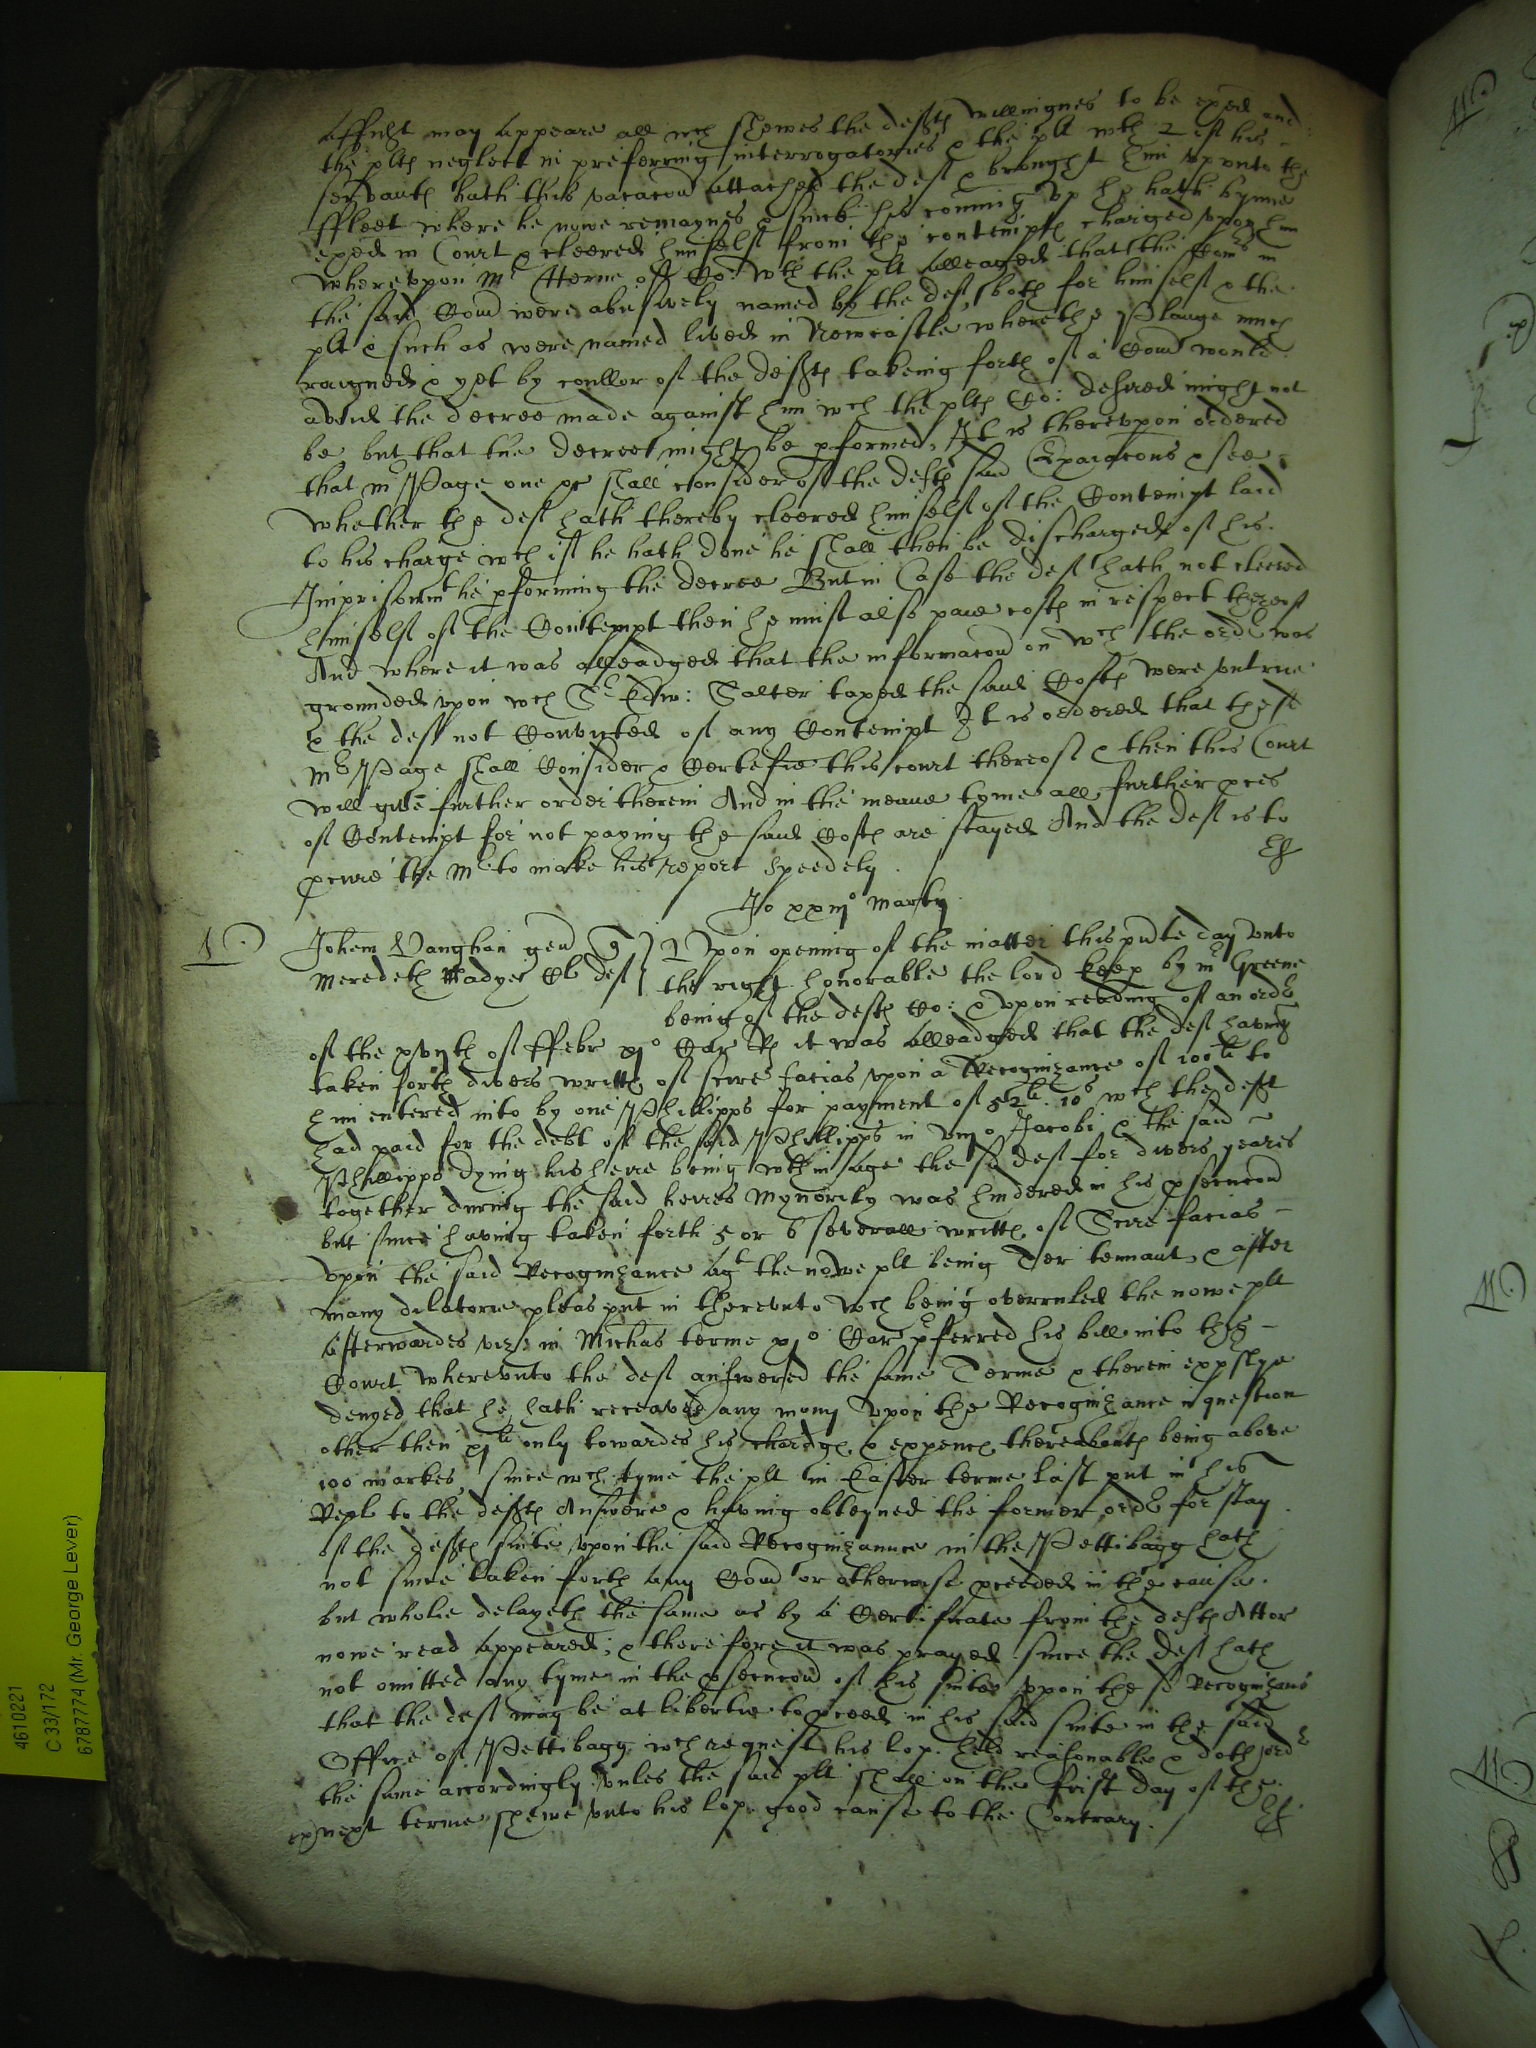 Affidt may appeare all wch shewes the defts willingnes to be exed and
the plts neglect in preferring interrogatories & the plt wth 2 of his
servants hath this vacacon attached the deft & brought him vp vnto the
ffleet where he nowe remaynes & since his coming vp he hath bynne
exed in Court & cleered himselfe from the contempts charged vpon him
wherevpon Mr Herne of Co: wth the plt alleaged that the Comrs in
the said Comn were abusively named by the deft both for himself & the
plt & such as were named lived in Newcastle where the Plague much
raigned & yet by coullor of the defts takeing forth of a Comn would
avoid the decree made against him wch the plts Co: desired might not
be but that the decree might be pformed, It is therevpon ordered
that mr Page one &c shall consider of the defts said Exparacons & see
whether the deft hath thereby cleered himself of the Contempt laid
to his charge wch if he hath done he shall then be discharged of his
Imprisonmt he pforming the decree But in Case the deft hath not cleered
himself of the Contempt then he must also paie costs in respect thereof
And where it was alleadged that the informacon on wch the ordr was
grounded vpon wch Sr Edw: Salter taxed the said Costs were vntrue
& the deft not Convicted of any Contempt It is ordered that the sd
Mr Page shall Consider & Certefie this court thereof & then this Court
will give further order therein And in the meane tyme all further pces
of Contempt for not paying the said Costs are stayed And the deft is to
pcure the Mr to make his report speedely
Jo xxiijo Martij
Johem Vaughan gen q
Meredeth Madyes Cl deft
Vpon opening of the matter this pnte day vnto
the right honorable the lord keep by mr Greene
being of the defts Co: & vpon reading of an ordr
of the xvijth of ffebr xjo Car R it was alleadged that the deft having
taken forth divers writts of scire facias vpon a Recognizance of 100li to
him entered into by one Phillipps for payment of 52li 10s wch the deft
had paid for the debt of the said Phillipps in viijo Jacobi, & the said
Phillipps dying his heire being wthin Age the sd deft for divers yeares
together during the said heires mynority was hindered in his psecucon
but since having taken forth 5 or 6 severall writts of Scire facias
vpon the said Recognizance agt the nowe plt being Ter tennant, & after
many dilatorie pleas put in therevnto wch being overruled the nowe plt
afterwardes vizt in Michas terme xjo Car pferred his bill into this
Court wherevnto the deft answered the same Terme & therein expsly
denyed that he hath receaved any mony vpon the Recognizance in question
other then xjli only towardes his chardgs & expencs thereabouts being above
100 markes, since wch tyme the plt in Easter terme last put in his
Repl to the defts Answere & having obteyned the former ordr for stay
of the defts suite vpon the said Recognizannce in the Pettibagg hath
not since taken forth any Comn or otherwise pceeded in the cause
but wholie delayeth the same as by a Certificate from the defts Attor
nowe read appeared; & therefore it was prayed since the deft hath
not omitted any tyme in the psecucon of his suites vpon the sd Recognizans
that the deft may be at libertie to pceed in his said suite in the said
Office of Pettibagg wch request his lop. held reasonable & doth ordr
the same accordingly vnles the said plt shall on the first day of the
next terme shewe vnto his lop. good cause to the Contrary.
4610221
C 33/172
6787774 (Mr. George Lever)